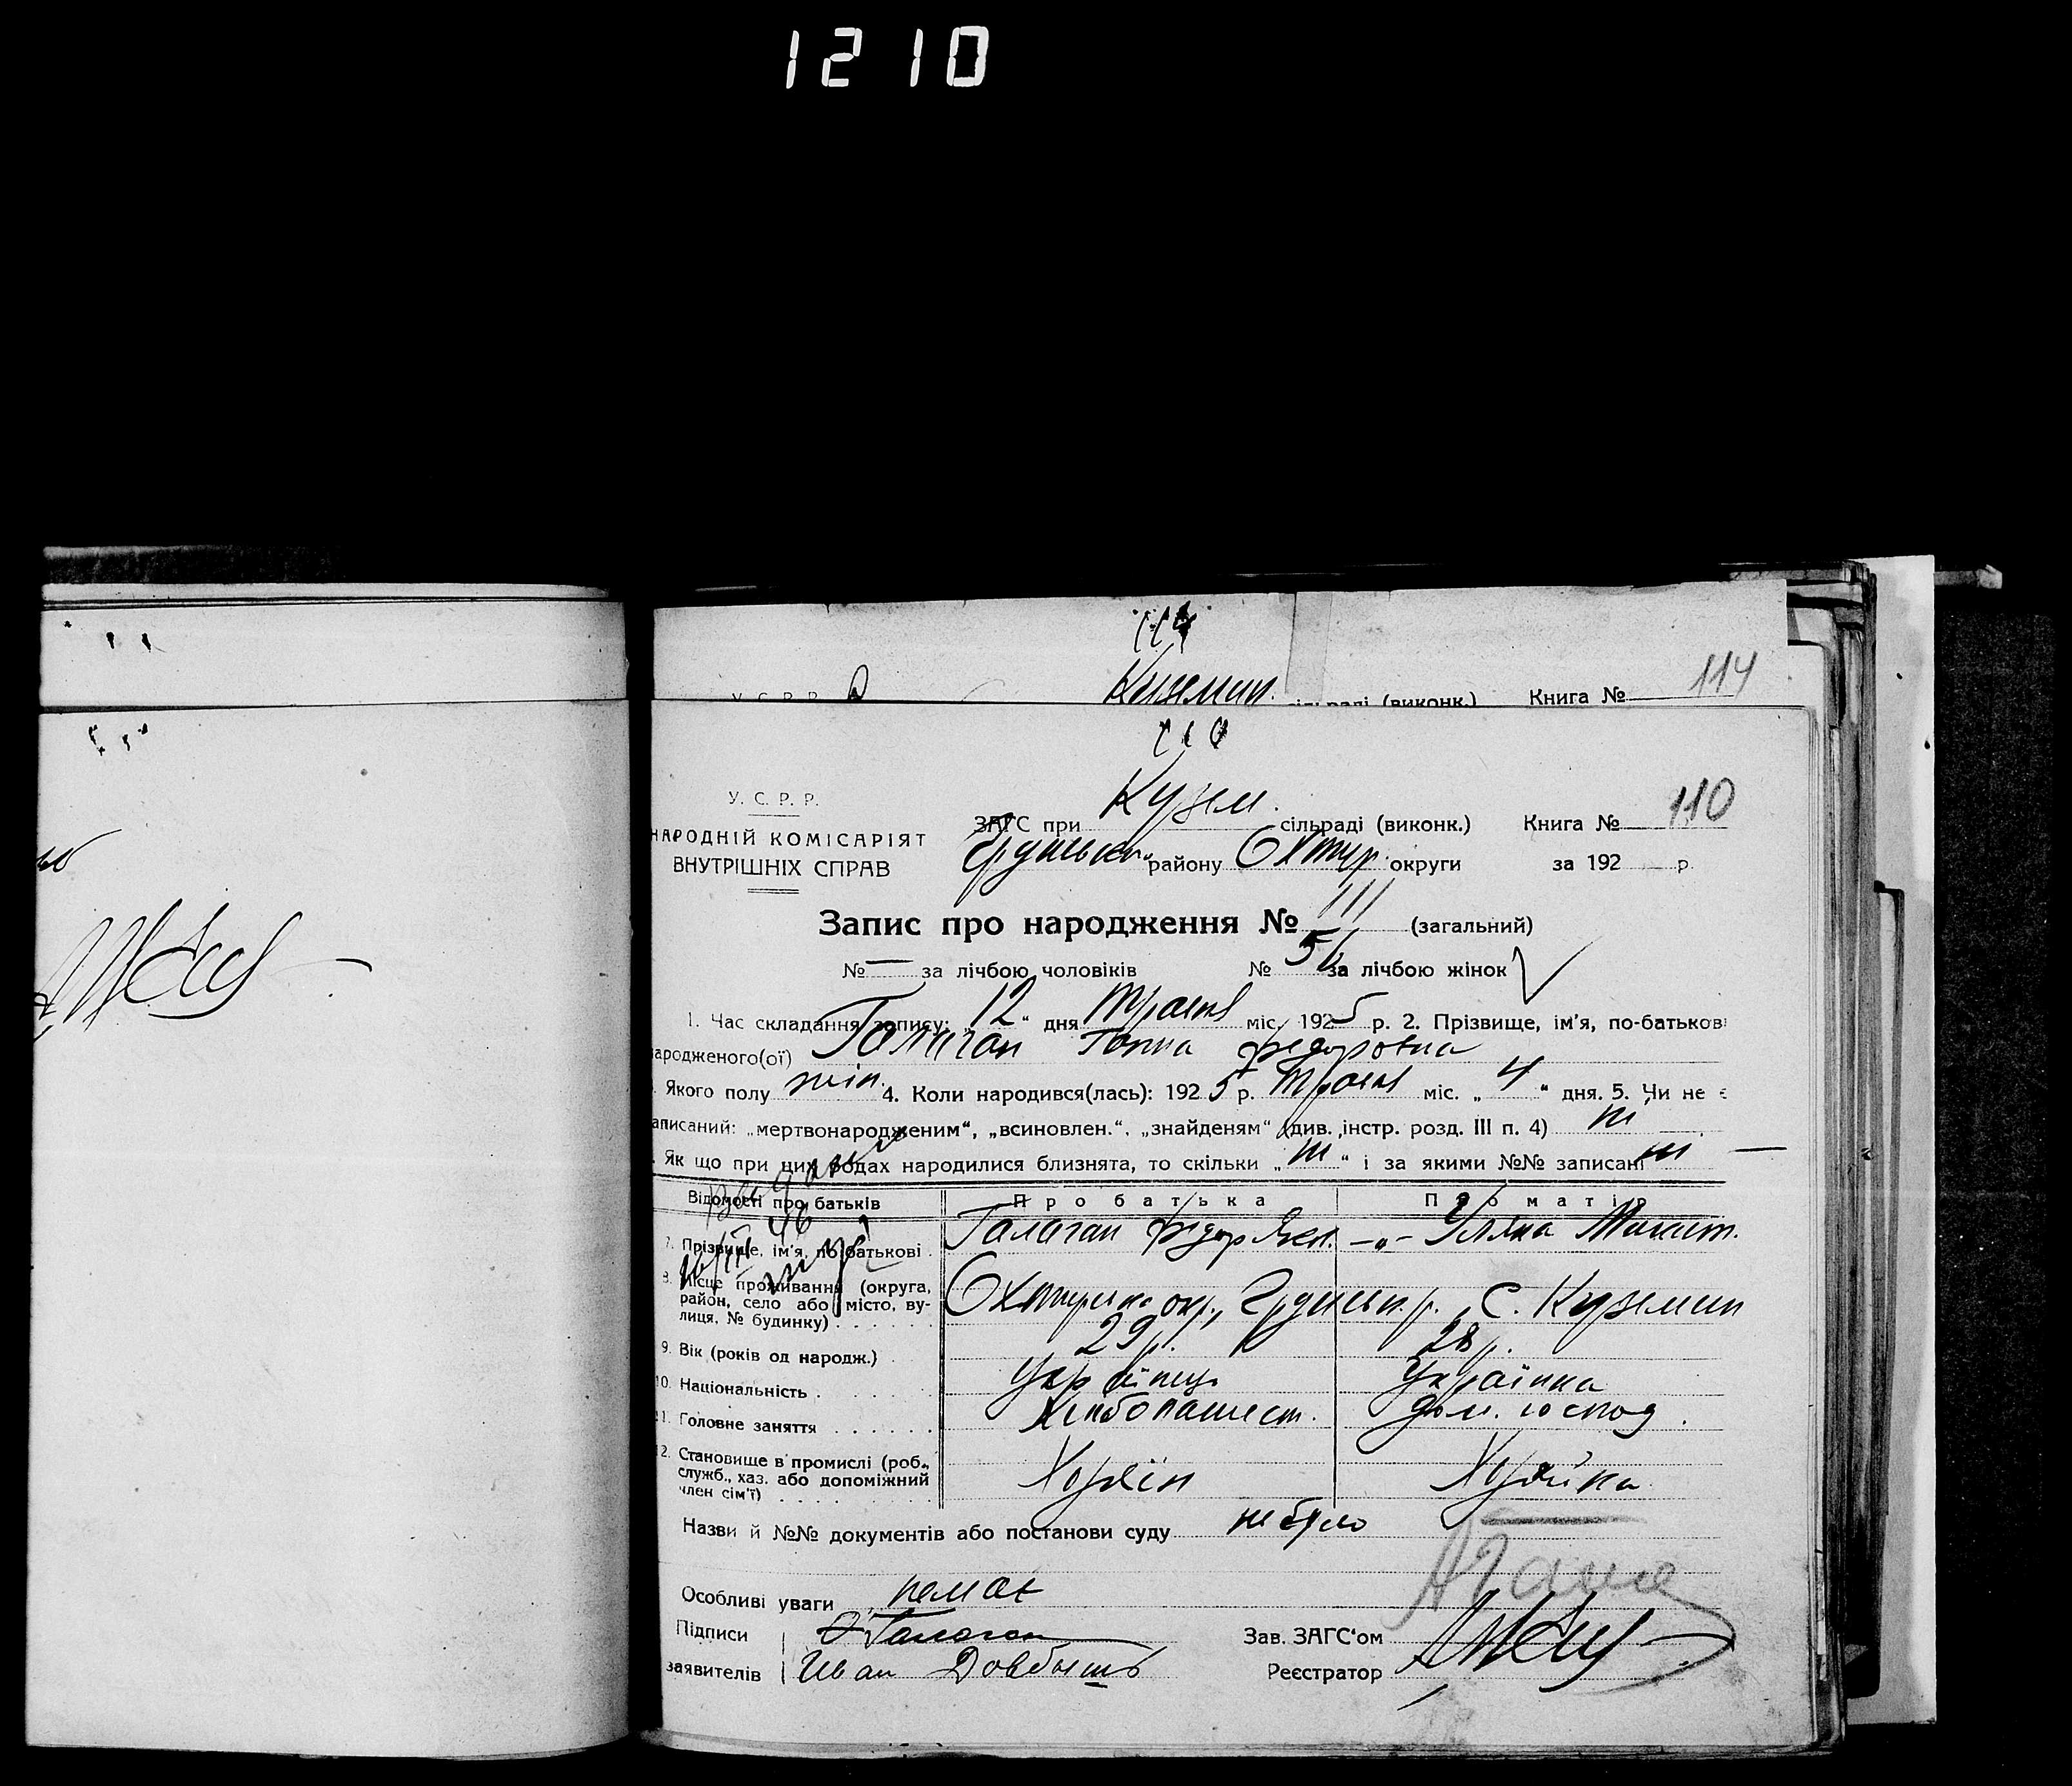 1210
114
Кузмин.
114
У. С. Р. Р.
сільраді (виконк.) Книга №
110
Кузем.
110
У. С. Р. Р.
ЗАГС при сільраді (виконк.) Книга №
НАРОДНІЙ КОМІСАРІЯТ
Грунськ. району Охтир. округи за 192 р.
ВНУТРІШНІХ СПРАВ
Запис про народження № 111 (загальний)
№ — за лічбою чоловіків № 51 за лічбою жінок
1. Час складання запису: „ 12 “ дня Травня міс. 1925 р. 2. Прізвище, ім'я, по-батькові
народженого(ої) Галаган Ганна Федоровна
Якого полу жін. 4. Коли народився(лась): 1925 р. Травня міс. „ 4 “ дня. 5. Чи не є
записаний: „мертвонародженим“, „всиновлен.“, „знайденям“ (див. інстр. розд. III п. 4) ні
Як що при цих родах народилися близнята, то скільки „ ні “ і за якими №№ записані ні —
Відомості про батьків Про батька Про матір
7. Прізвище, ім'я, по-батькові Галаган Федор Яке. —„— Уляна Микит.
8. Місце проживання (округа, район, село або місто, ву-
лиця, № будинку) Охтирська окр., Грунськ. р. С. Куземин
9. Вік (років од народж.) 29 р. 28 р.
10. Національність Українець Українка
11. Головне заняття Хлібопашест. Дом. господ.
12. Становище в промислі (роб.,
служб., хаз. або допоміжний
член сім'ї) Хозяїн Хозяйка
Назви й №№ документів або постанови суду не було
Особливі уваги немає
Підписи Ф Галаган Зав. ЗАГС'ом
заявителів Иван Довбышъ Реєстратор